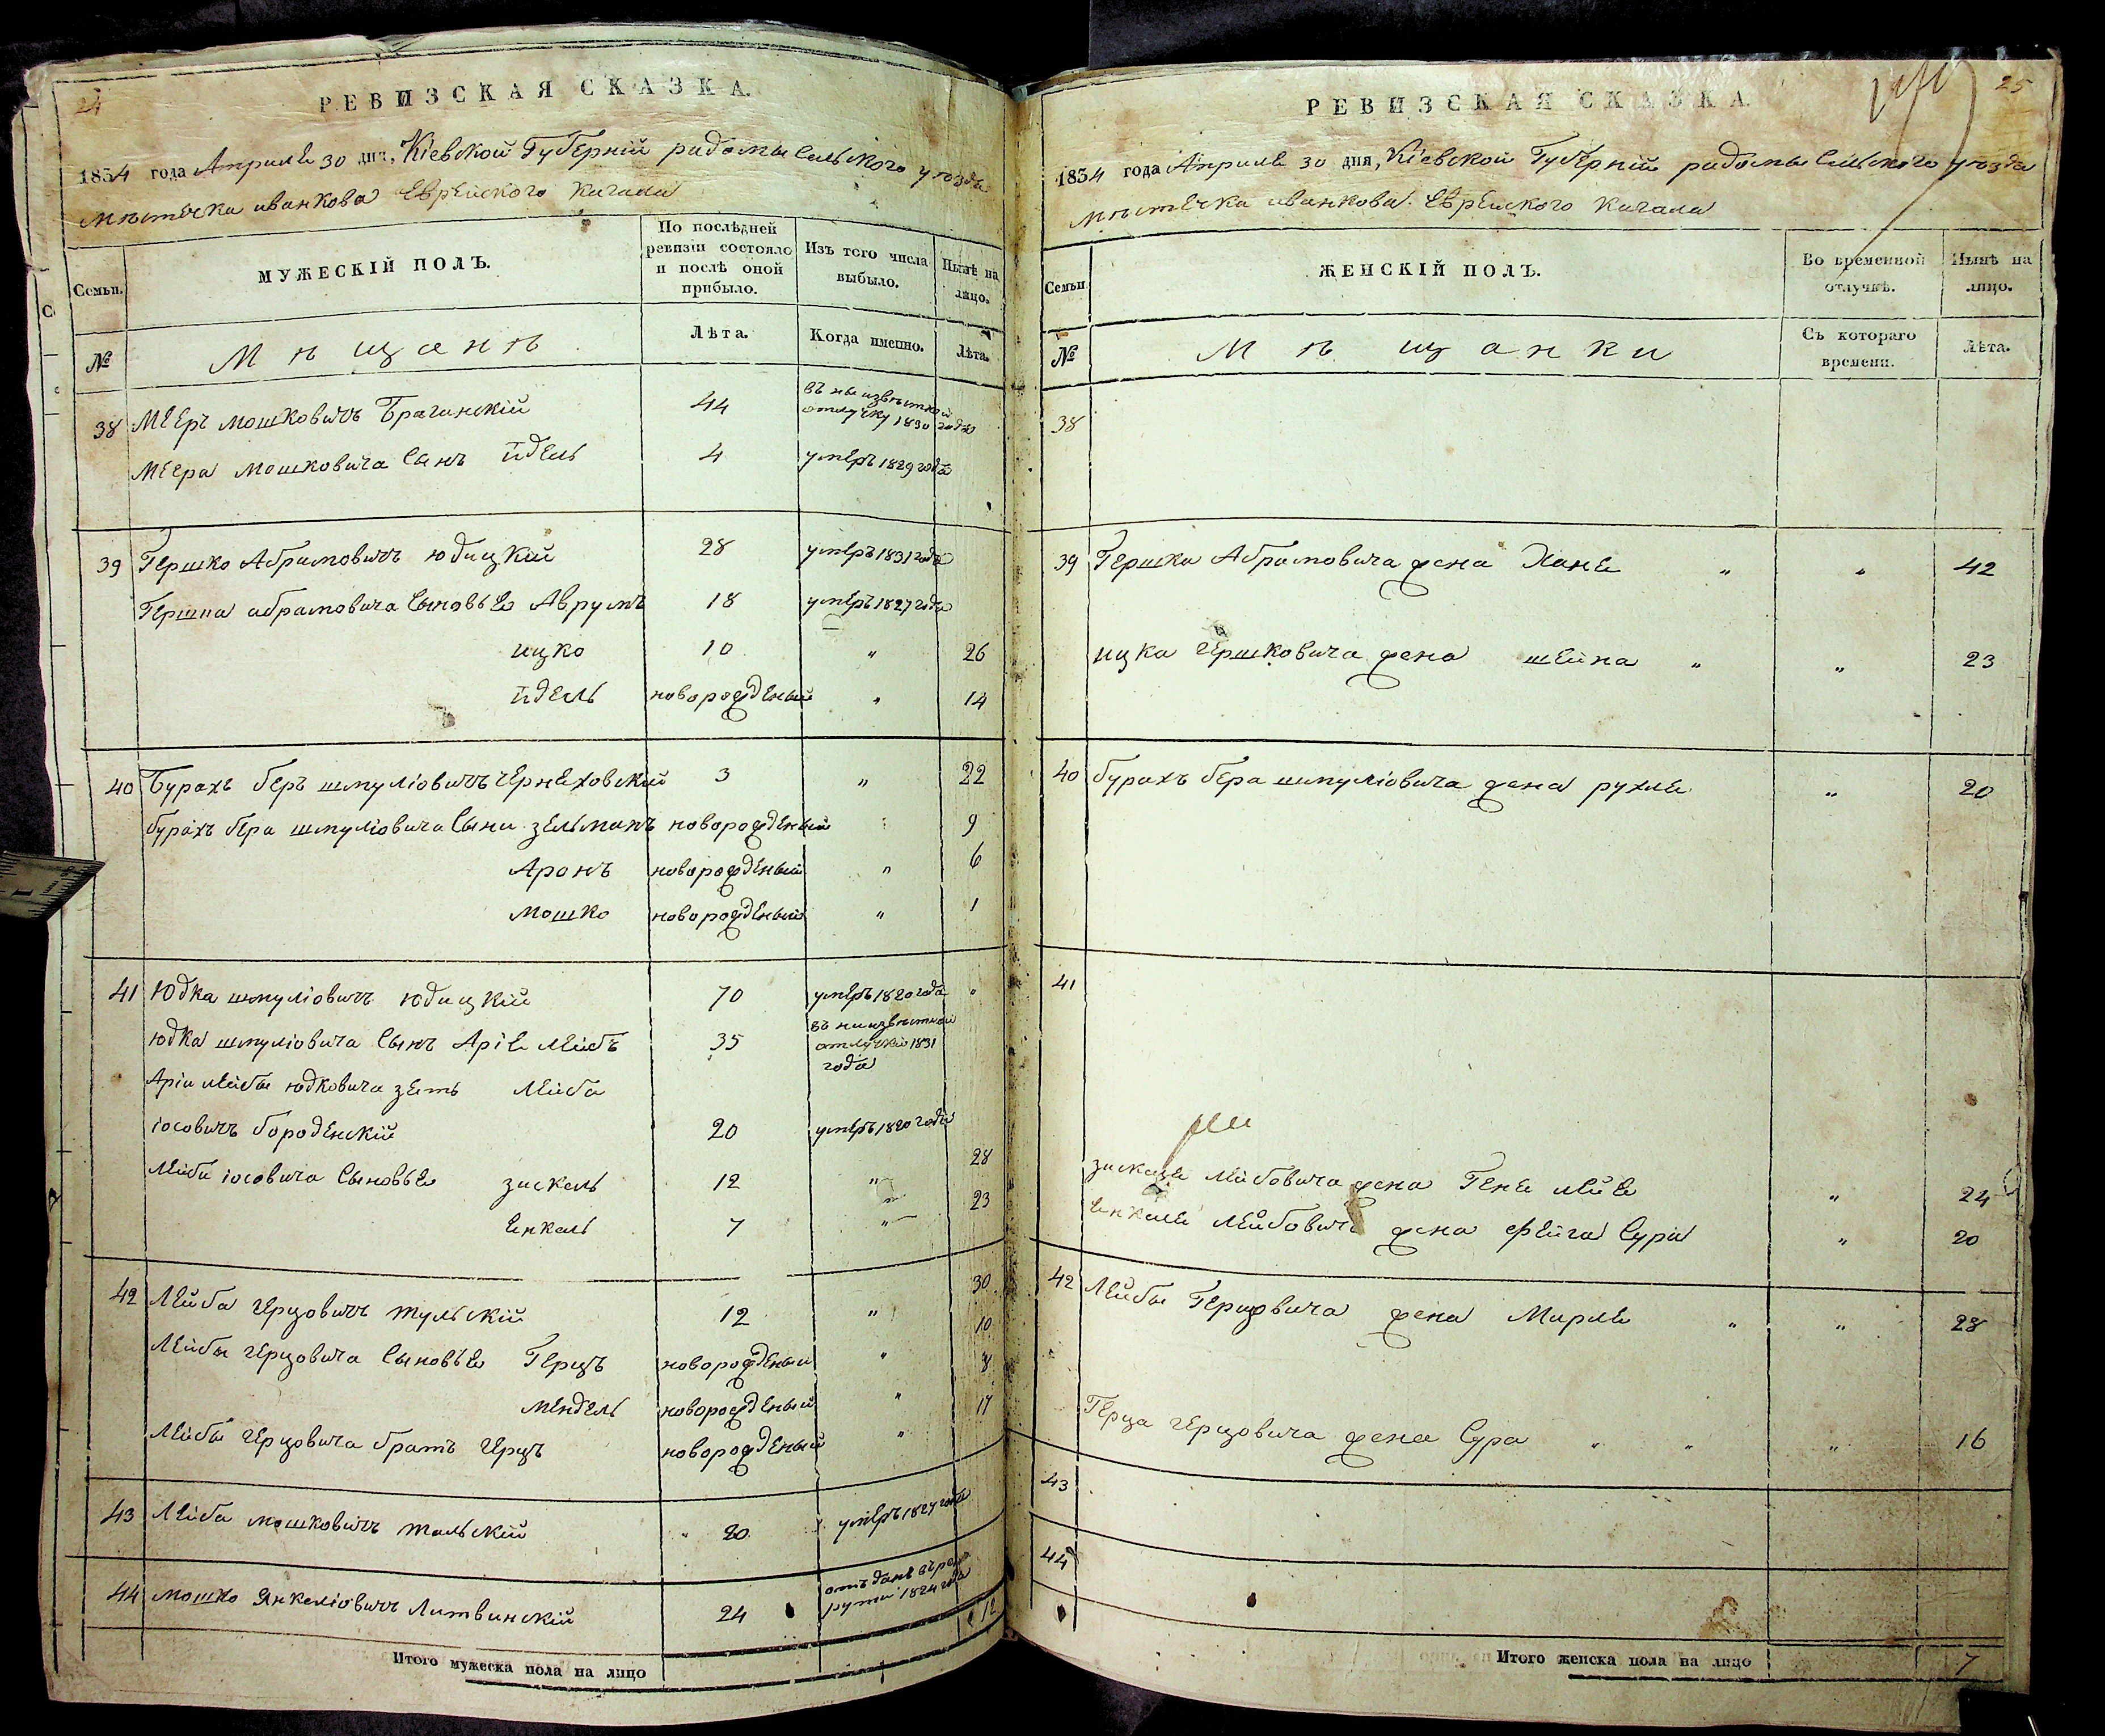 24
РЕВИЗСКАЯ СКАЗКА.
1834 года Апреля 30 дня, Кіевской Губерніи радомысельского уезда
мѣстечка иванкова Еврейского Кагала
Семьи.
МУЖЕСКІЙ ПОЛЪ.
По послѣдней ревизіи состояло и послѣ оной прибыло.
Изъ того числа выбыло.
Нынѣ на лицо.
№
Мѣщанѣ
Лѣта.
Когда именно.
Лѣта.
38 Мееръ мошковичъ Брагинскій 44 въ не извѣстной отлучку 1830 года
Меера Мошковича Сынъ йдель 4 умеръ 1829 года
39 Гершко Абрамовичъ юдицкій 28 умеръ 1831 года
Гершка абрамовича Сыновье Аврумъ 18 умеръ 1827 года
ицко 10 " 26
йдель новорожденый " 14
40 Бурахъ беръ шмуліовичъ Чернеховскій 3 " 22
бурахъ бера шмуліовича Сыни зельманъ новорожденый " 9
Аронъ новорожденый " 6
мошко новорожденый " 1
41 Юдка шмуліовичъ юдицкій 70 умеръ 1820 года "
юдка шмуліовича Сынъ Аріе лейбъ 35 въ неизвѣстной отлучкѣ 1831 года
Аріи лейбы юдковича зеть лейба
іосовичъ бороденскій 20 умеръ 1820 года
лейби іосовича Сыновье зискель 12 " 28
Енкель 7 " 23
42 Лейба герцовичъ тульскій 12 " 30
Лейбы герцовича Сыновье Герцъ новорожденый " 10
мендель новорожденый " 8
Лейбы герцовича братъ герцъ новорожденый " 17
43 Лейба мошковичъ тальскій 20 умеръ 1827 года
44 мошко Янкеліовичъ Литвинскій 24 отъданъ въ рекрути 1824 года
Итого мужеска пола на лицо 12
25
РЕВИЗСКАЯ СКАЗКА.
1834 года Апреля 30 дня, Кіевской Губерніи радомысельского уезда
мѣстечка иванкова Еврейского Кагала
Семьи
ЖЕНСКІЙ ПОЛЪ.
Во временной отлучкѣ.
Нынѣ на лицо.
№
Мѣщанки
Съ котораго времени.
Лѣта.
38
39 Гершка Абрамовича жена Хане " " 42
ицка гершковича жена шейна " " 23
40 бурахъ бера шмуліовича жена рухле " 20
41
зискеля лейбовича жена Гене лее " 24
Енкеля лейбовича жена фейга Сура " 20
42 Лейбы Герцовича жена Мирле " " 28
Герца герцовича жена Сура " " " 16
43
44
Итого женска пола на лицо 7